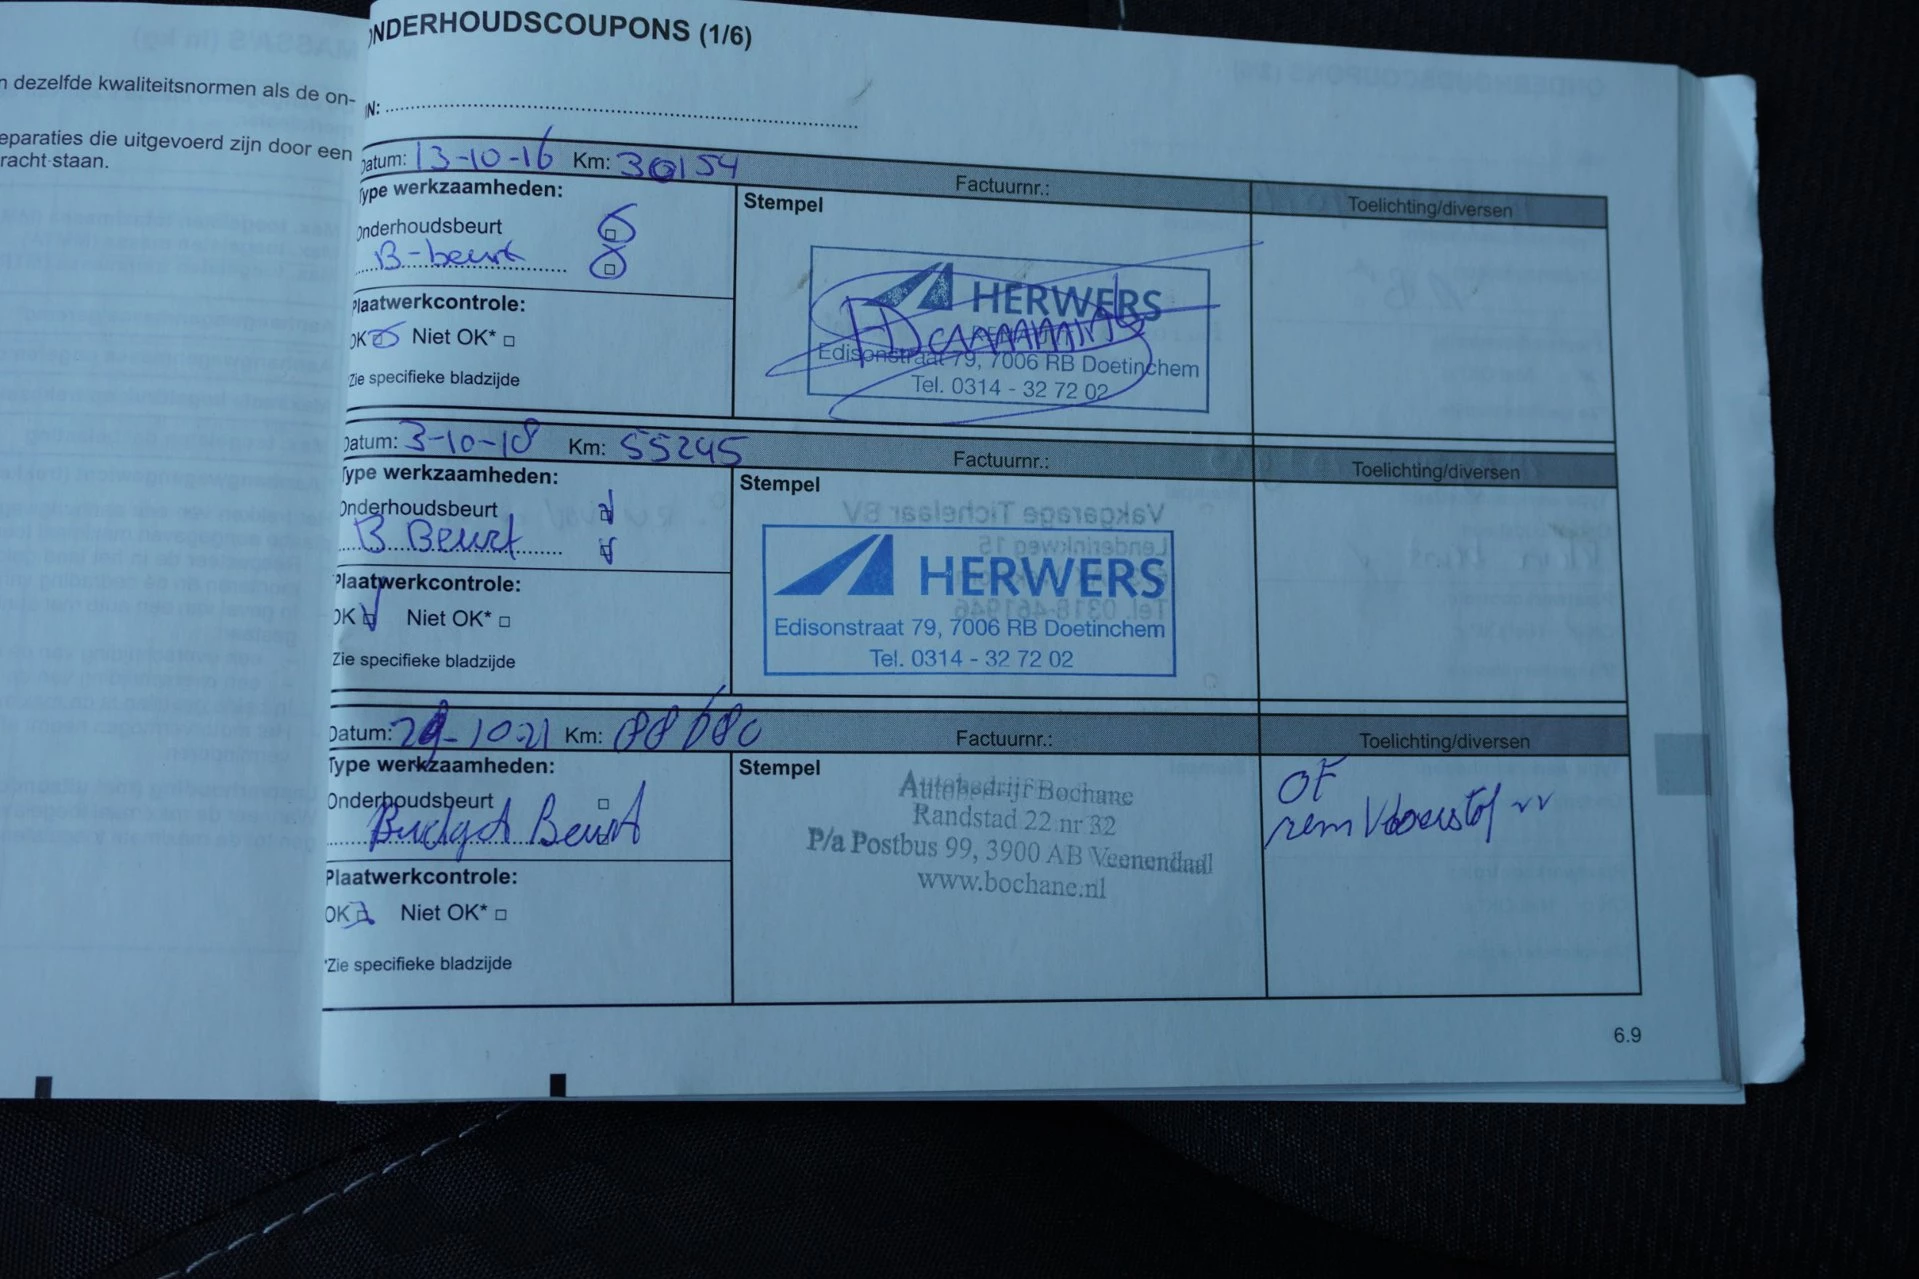 ONDERHOUDSCOUPONS (1/6)
n dezelfde kwaliteitsnormen als de on-
eparaties die uitgevoerd zijn door een
racht staan.
IN:
Datum: 13-10-16 Km: 30154 Factuurnr.:
Type werkzaamheden: Stempel Toelichting/diversen
Onderhoudsbeurt
B-beurt
HERWERS
Plaatwerkcontrole:
OK Niet OK*
Edisonstraat 79, 7006 RB Doetinchem
Tel. 0314 - 32 72 02
*Zie specifieke bladzijde
Datum: 3-10-18 Km: 55245 Factuurnr.: Toelichting/diversen
Type werkzaamheden: Stempel
Onderhoudsbeurt
B Beurt
Vakgarage Tichelaar BV
HERWERS
Plaatwerkcontrole:
OK Niet OK*
Edisonstraat 79, 7006 RB Doetinchem
Tel. 0314 - 32 72 02
Zie specifieke bladzijde
Datum: 29-10-21 Km: Factuurnr.: Toelichting/diversen
Type werkzaamheden: Stempel
Onderhoudsbeurt
Budget Beurt
Autobedrijf Bochane
Randstad 22 nr 32
P/a Postbus 99, 3900 AB Veenendaal
www.bochane.nl
OF
rem Vloeistof vv
Plaatwerkcontrole:
OK Niet OK*
*Zie specifieke bladzijde
6.9